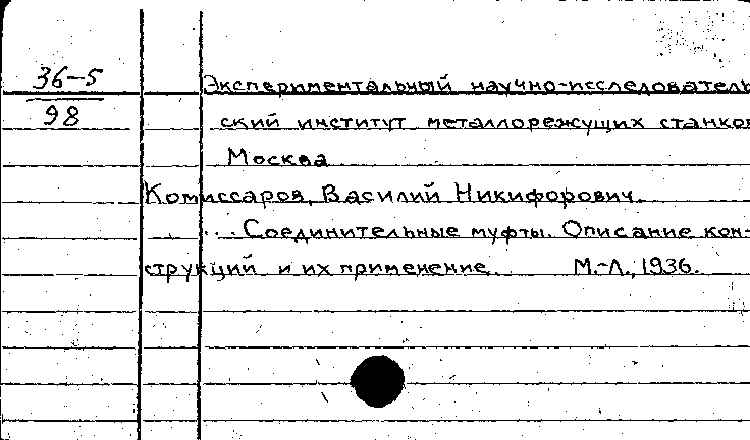 36-5
98
Экспериментальный научно-исследователь
ский институт металлорежущих станков
Москва
Комиссаров, Василий Никифорович.
... Соединительные муфты. Описание кон-
струкций и их применение. М.-Л., 1936.